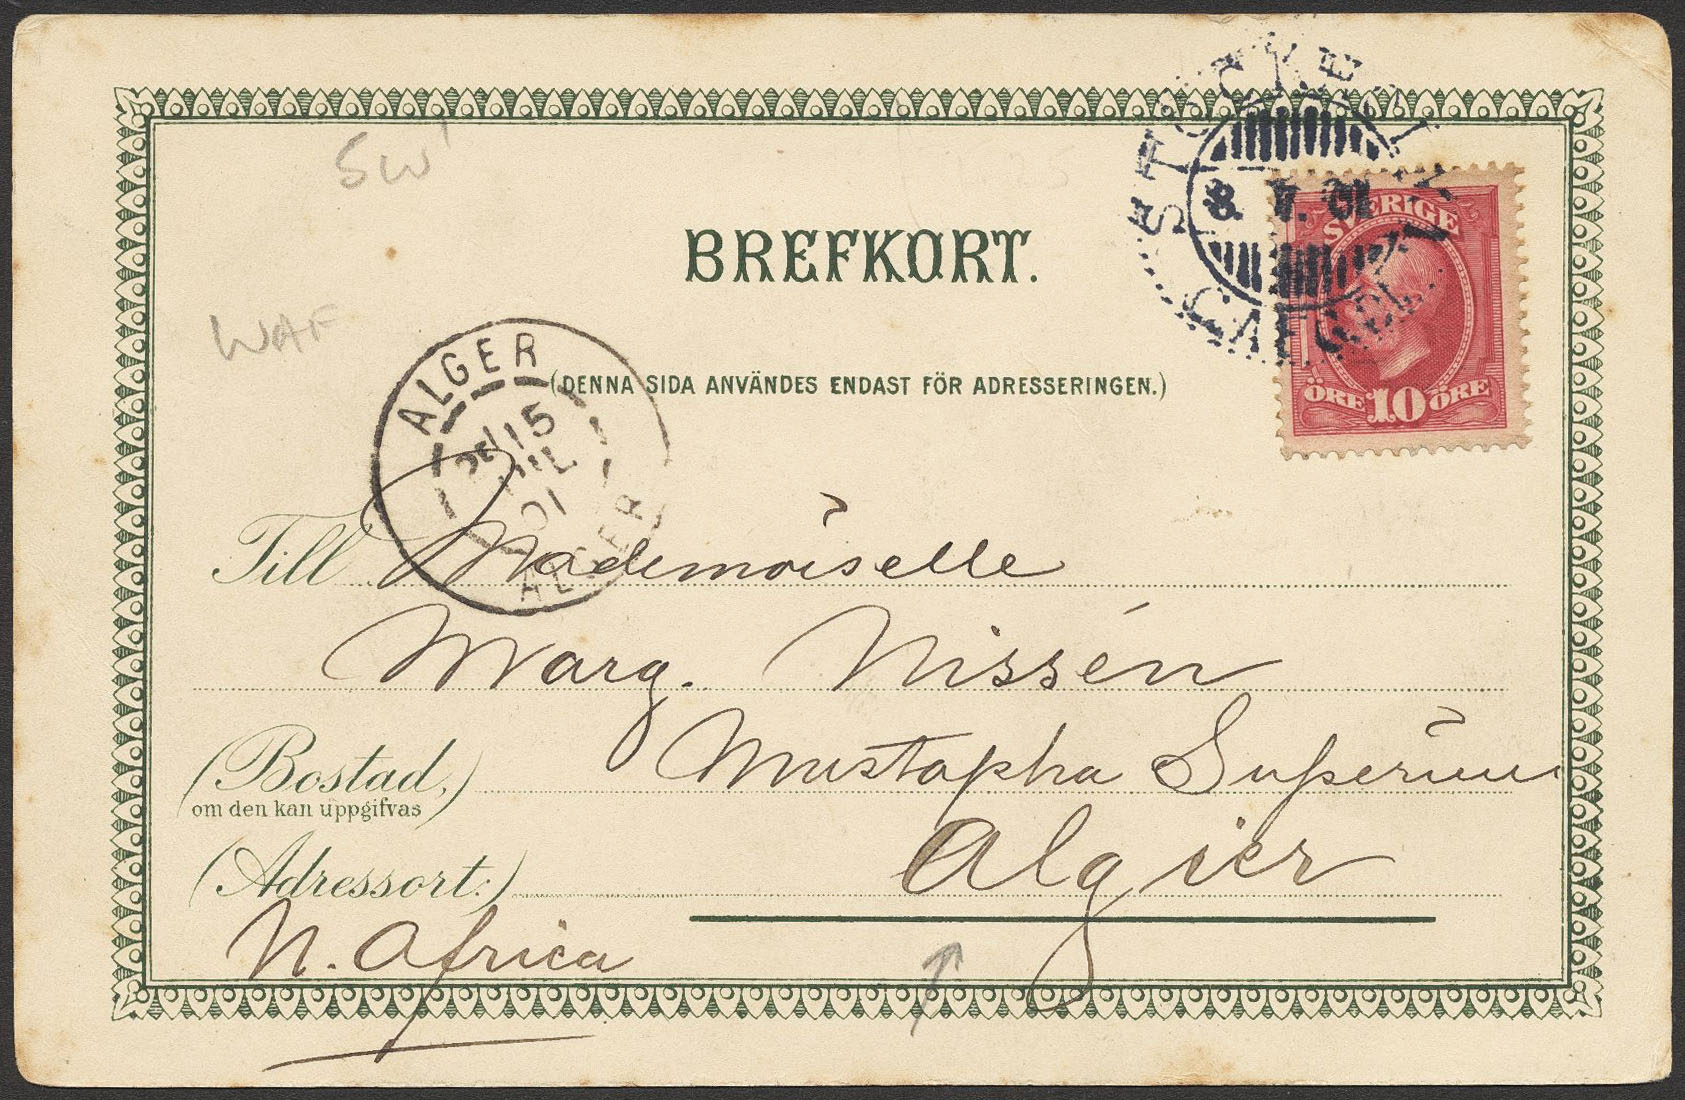 SW
STOCKHOLM
8. 01
SVERIGE
ÖRE 10 ÖRE
BREFKORT.
WAF
(DENNA SIDA ANVÄNDES ENDAST FÖR ADRESSERINGEN.)
ALGER
15
JUIL
01
ALGER
Till Mademoiselle
Marg. Nissén
(Bostad,) Mustapha Superiuu
om den kan uppgifvas
(Adressort:) Algier
N. Africa